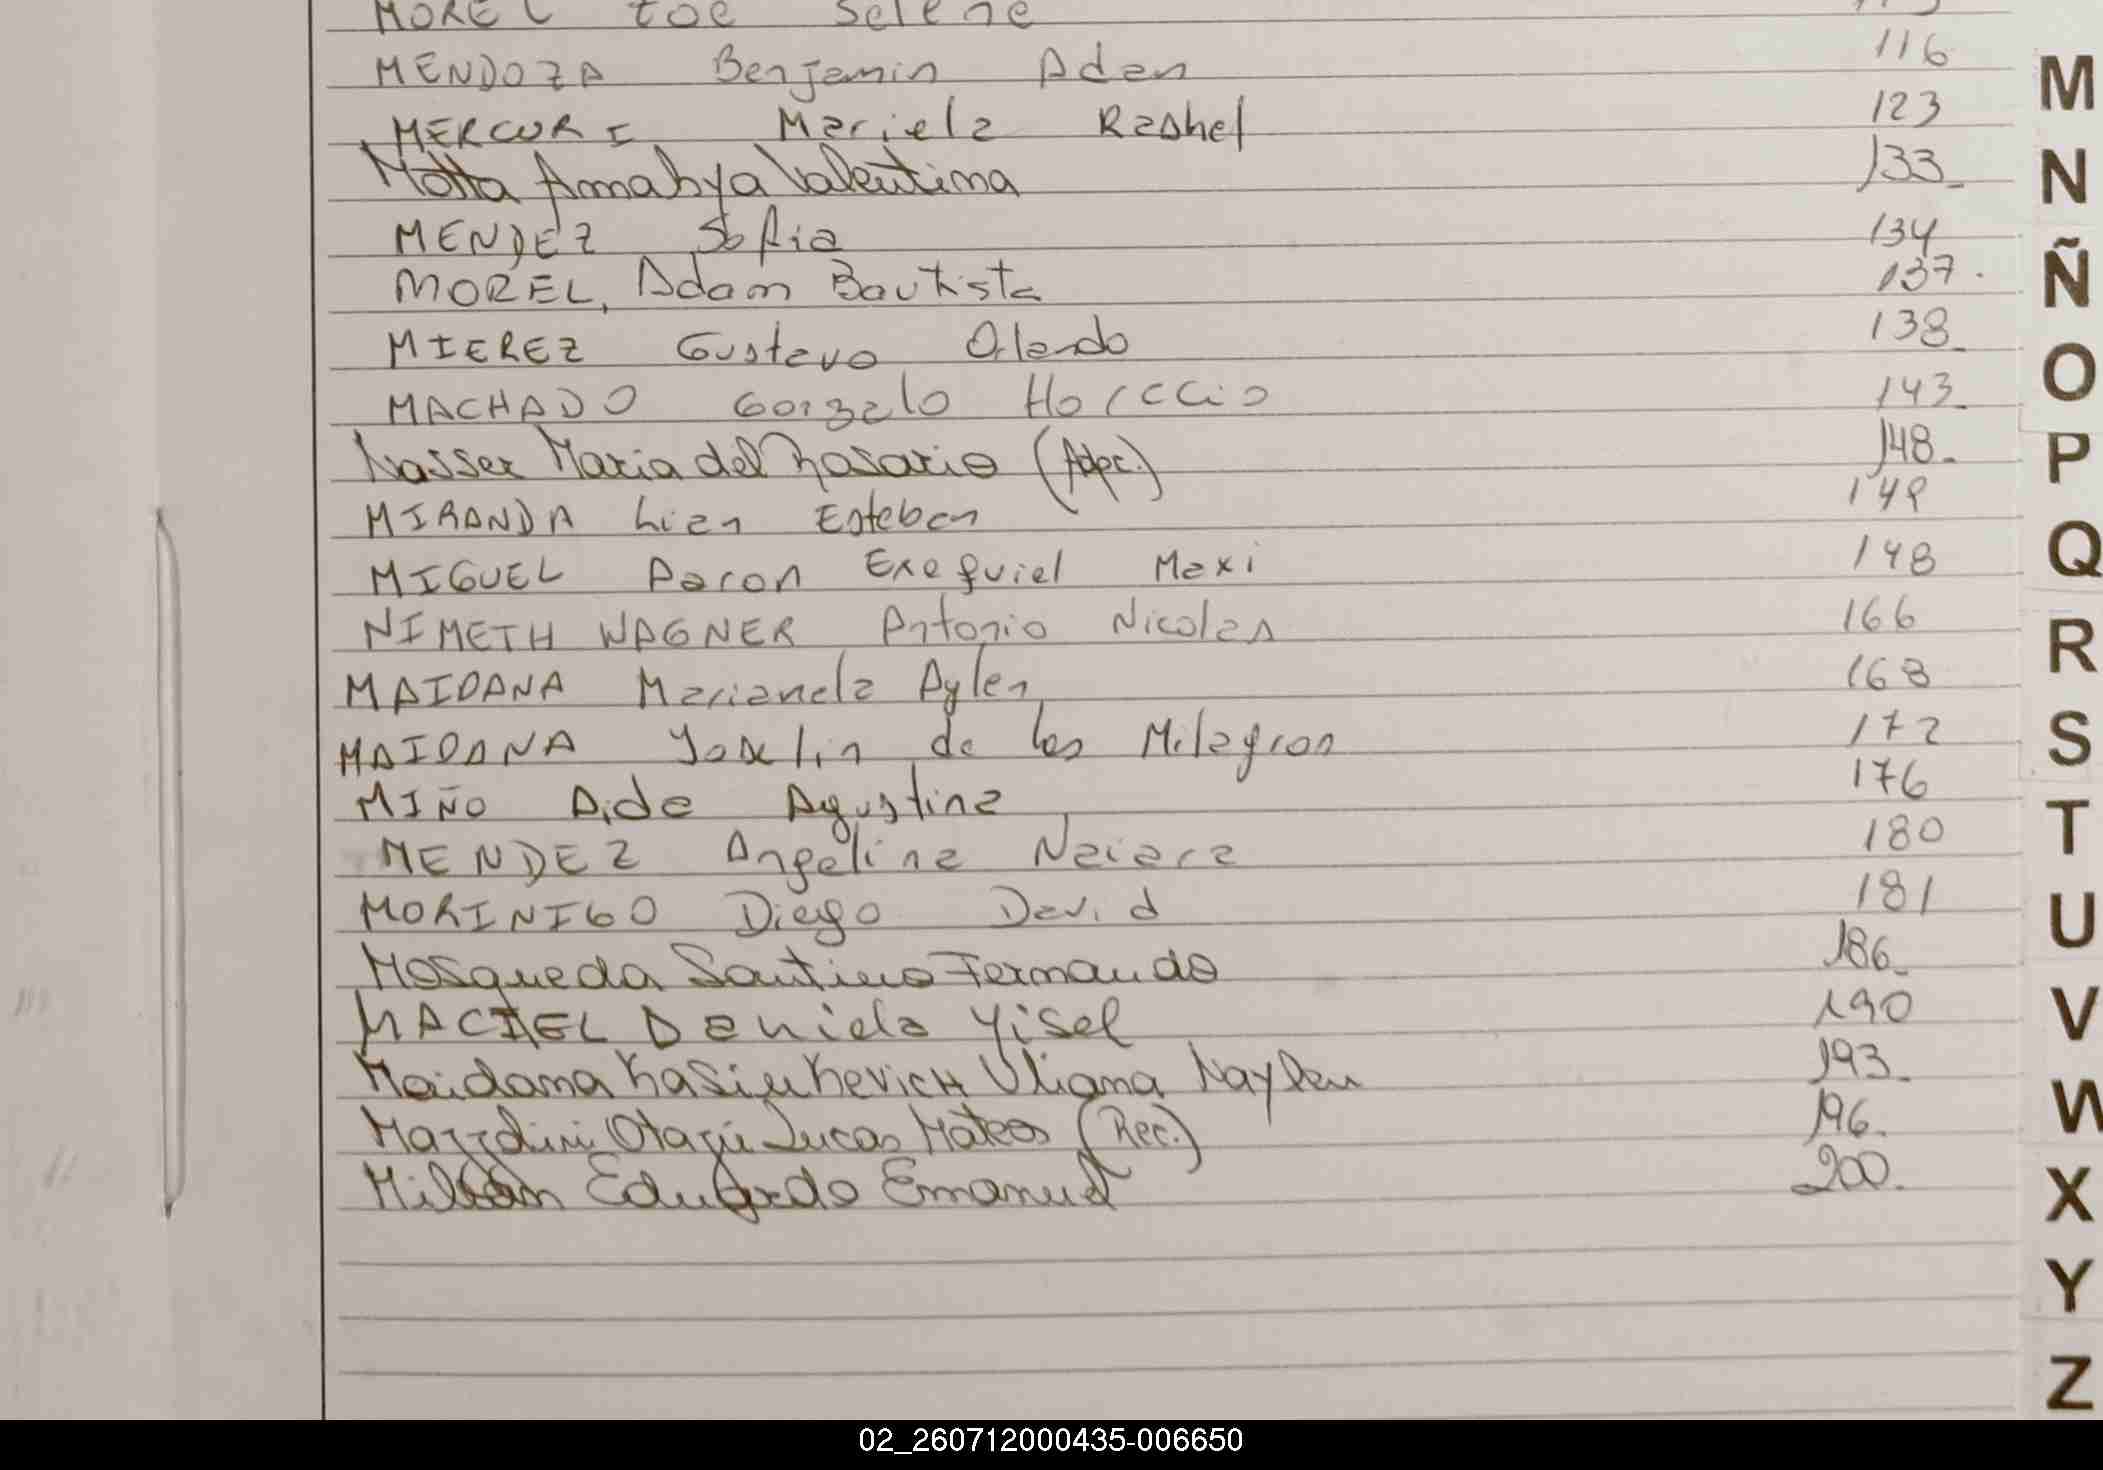 MOREL Zoe Selene 115
MENDOZA Benjamin Aden 116
MERCURI Mariela Rashel 123
Motta Annahya Valentina 133
MENDEZ Sofia 134
MOREL, Adam Bautista 137.
MIEREZ Gustavo Orlando 138
MACHADO Gonzalo Horacio 143
Nasser Maria del Rosario (Adpc.) 148.
MIRANDA Lian Esteban 149
MIGUEL Aaron Exequiel Maxi 148
NIMETH WAGNER Antonio Nicolas 166
MAIDANA Marianela Aylen 168
MAIDANA Joselin de los Milagros 172
MIÑO Aide Agustina 176
MENDEZ Angelina Naiara 180
MORINIGO Diego David 181
Mosqueda Santino Fernando 186
MACIEL Daniela Yisel 190
Maidana KasiukevicH Uliana Naylen 193
Lucas Mateo (Rec.) 196
Eduardo Emanuel 200.
M
N
Ñ
O
P
Q
R
S
T
U
V
W
X
Y
Z
02_260712000435-006650